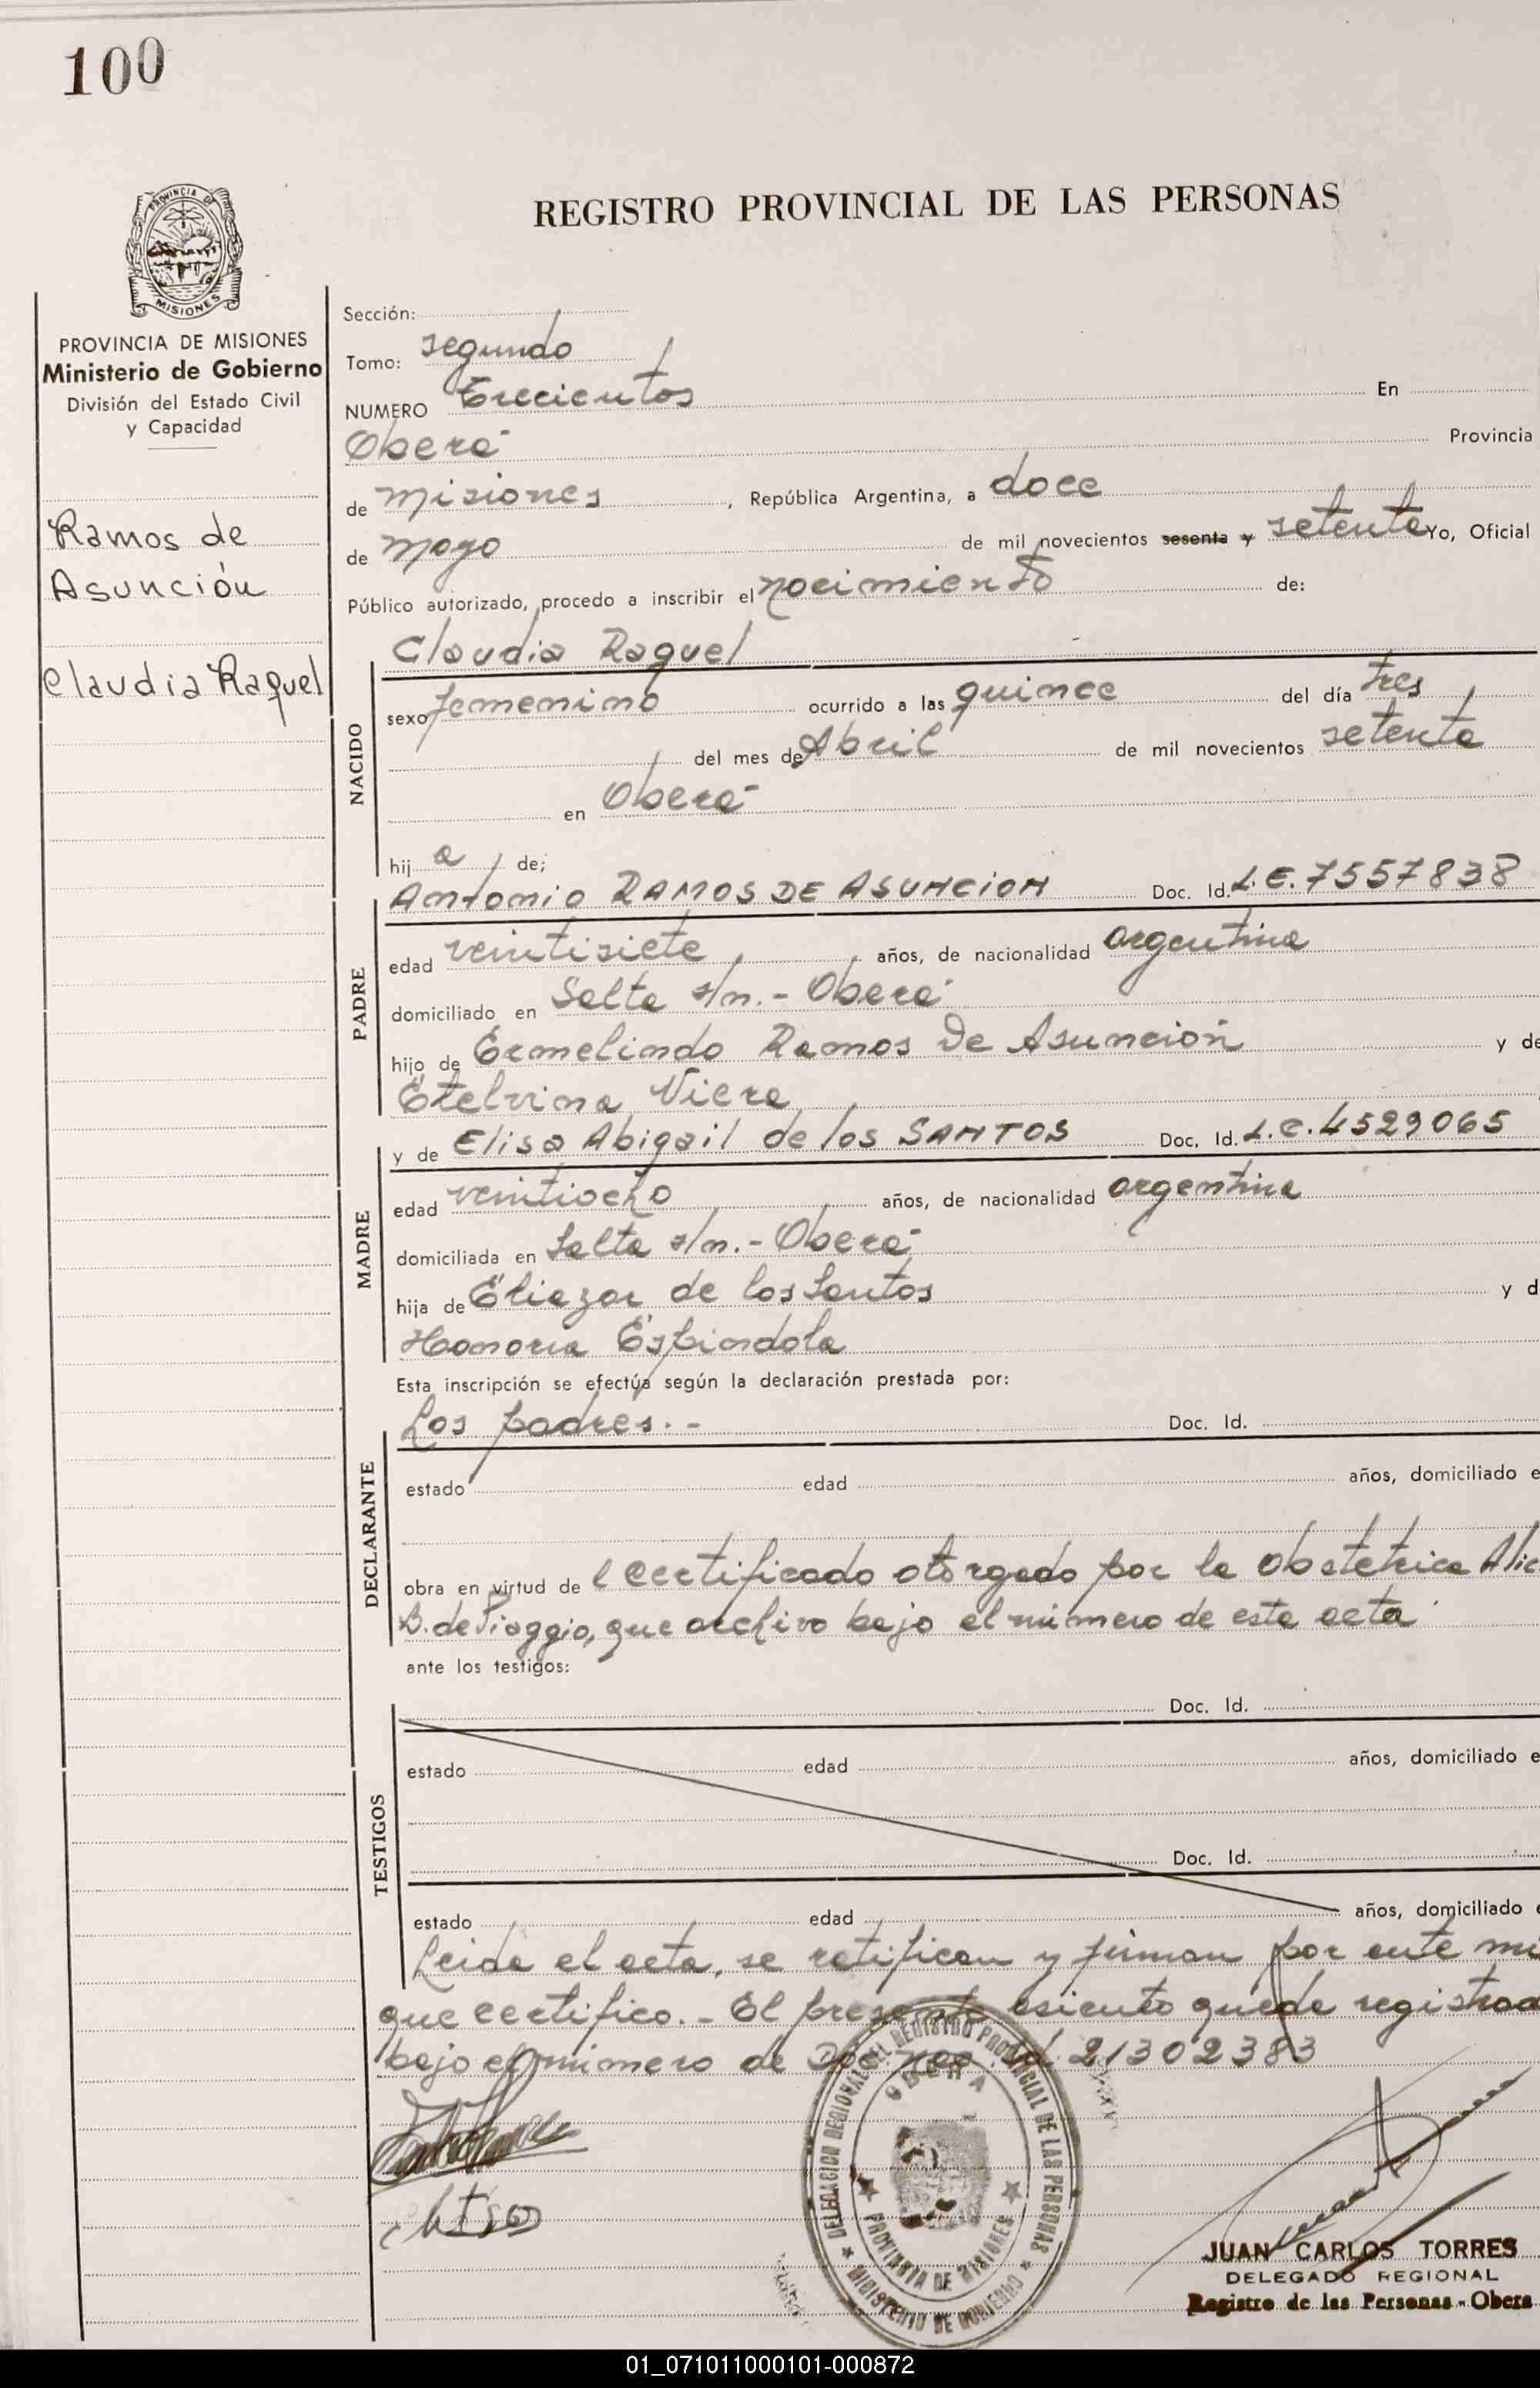 100
PROVINCIA DE
MISIONES
REGISTRO PROVINCIAL DE LAS PERSONAS
PROVINCIA DE MISIONES
Ministerio de Gobierno
División del Estado Civil
y Capacidad
Ramos de
Asunción
Claudia Raquel
Sección:
Tomo: segundo
NUMERO Trecientos En
Oberá Provincia
de Misiones, República Argentina, a doce
de Mayo de mil novecientos sesenta y setenta Yo, Oficial
Público autorizado, procedo a inscribir el nacimiento de:
NACIDO
Claudia Raquel
sexo femenino ocurrido a las quince del día tres
del mes de Abril de mil novecientos setenta
en Oberá
hij a de;
PADRE
Antonio RAMOS DE ASUNCION Doc. Id. L.E. 7557838
edad veintisiete años, de nacionalidad argentina
domiciliado en Salta s/n.- Oberá
hijo de Ermelindo Ramos De Asunción y de
Etelvina Viera
MADRE
y de Elisa Abigail de los SANTOS Doc. Id. L.C. 4529065
edad veintiocho años, de nacionalidad argentina
domiciliada en Salta s/n.- Oberá
hija de Eliazar de los Santos y d
Honoria Espindola
Esta inscripción se efectúa según la declaración prestada por:
DECLARANTE
Los padres.- Doc. Id.
estado edad años, domiciliado e
obra en virtud de l certificado otorgado por la Obstetrica Alic
B. de Viaggio, que archivo bajo el número de esta acta
ante los testigos:
TESTIGOS
Doc. Id.
estado edad años, domiciliado e
Doc. Id.
estado edad años, domiciliado e
Leida el acta, se ratifican y firman por ante mi
que certifico.- El presente asiento queda registrad
bajo el número de Doc. Nac. Id. 21302383
DELEGACION REGIONAL DEL REGISTRO PROVINCIAL DE LAS PERSONAS
OBERA
PROVINCIA DE MISIONES
MINISTERIO DE GOBIERNO
JUAN CARLOS TORRES
DELEGADO REGIONAL
Registro de las Personas - Obera
01_071011000101-000872